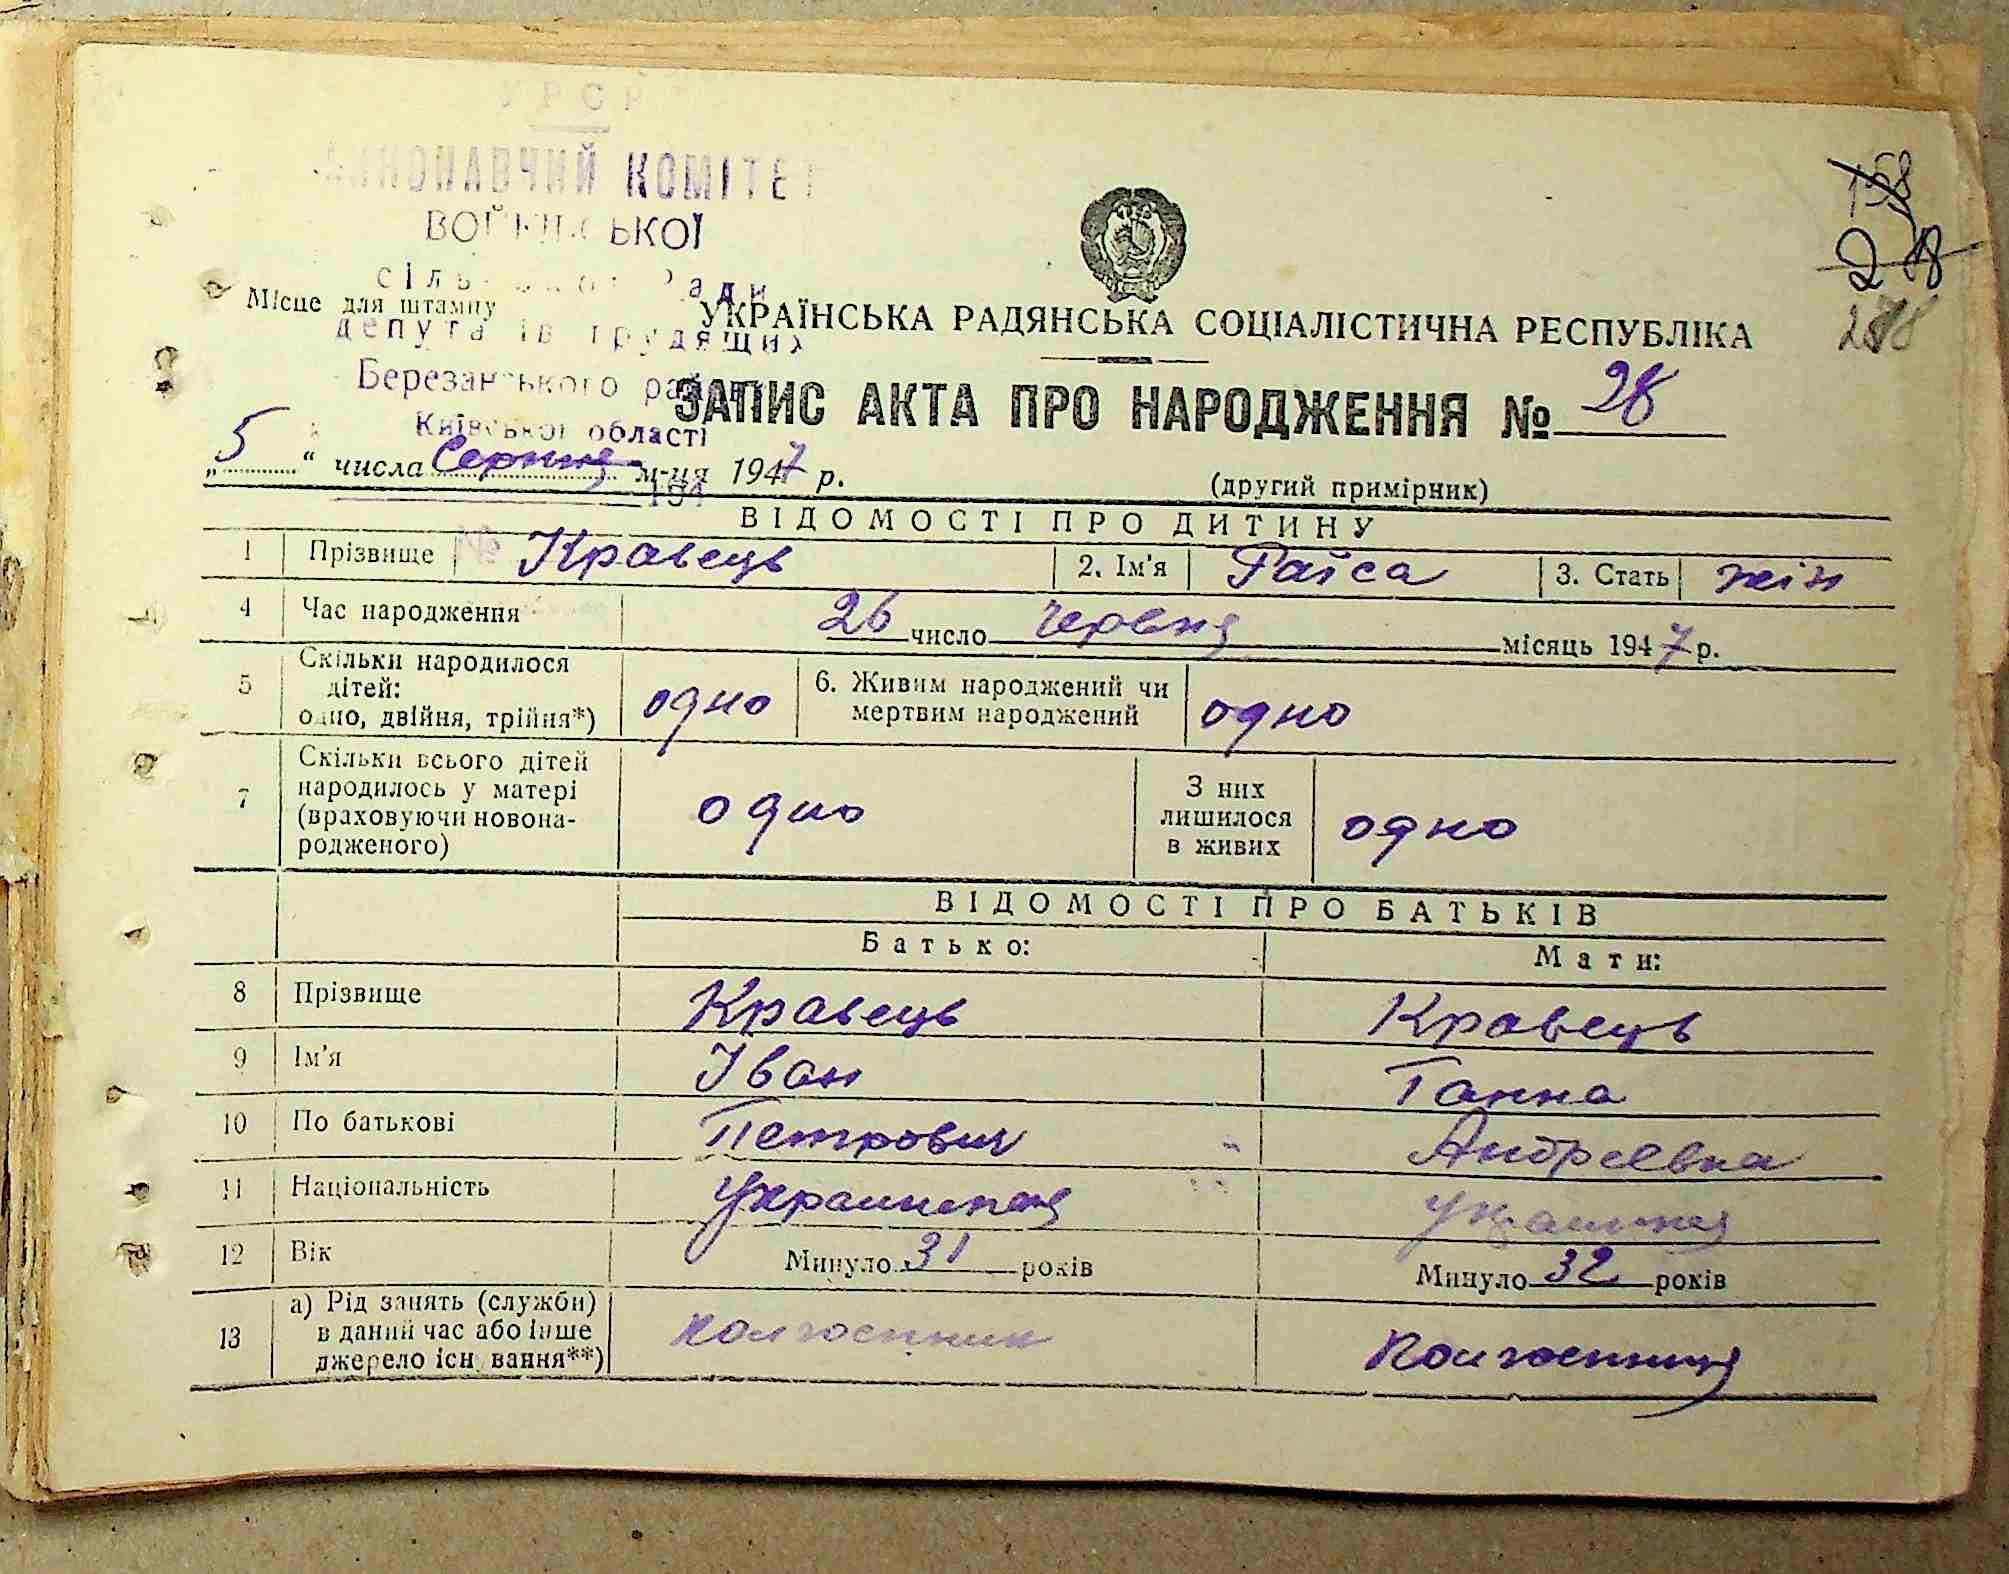 УРСР
ВИКОНАВЧИЙ КОМІТЕТ
ВОЙКІВСЬКОЇ
сільської Ради
Місце для штампу
депутатів трудящих
Березанського району
Київської області
158
218
УКРАЇНСЬКА РАДЯНСЬКА СОЦІАЛІСТИЧНА РЕСПУБЛІКА
ЗАПИС АКТА ПРО НАРОДЖЕННЯ № 28
„5“ числа Серпня м-ця 1947 р.
194
(другий примірник)
ВІДОМОСТІ ПРО ДИТИНУ
1 Прізвище № Кравець 2. Ім'я Раїса 3. Стать жін
4 Час народження 26 число Червня місяць 1947 р.
5 Скільки народилося дітей: одно, двійня, трійня*) одно 6. Живим народжений чи мертвим народжений одно
7 Скільки всього дітей народилось у матері (враховуючи новонародженого) одно З них лишилося в живих одно
ВІДОМОСТІ ПРО БАТЬКІВ
Батько: Мати:
8 Прізвище Кравець Кравець
9 Ім'я Іван Ганна
10 По батькові Петрович Андреевна
11 Національність
12 Вік Минуло 31 років Минуло 32 років
13 а) Рід занять (служби) в даний час або інше джерело існування**) колгоспник Колгоспниця